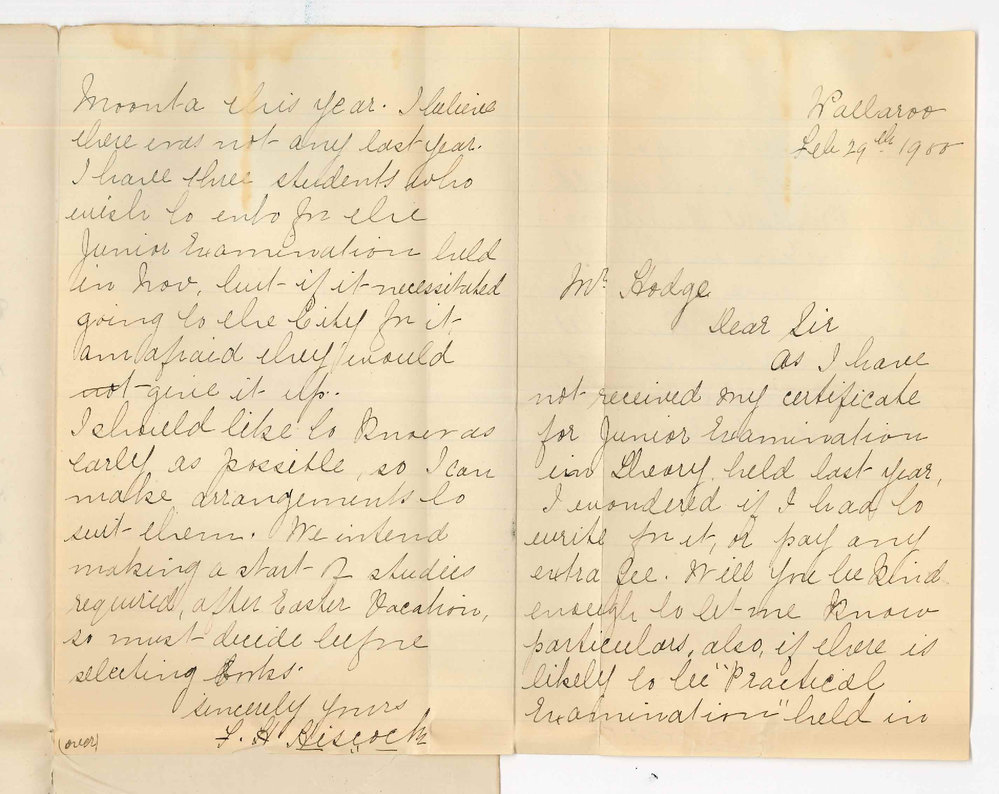 Wallaroo
Feb 29th 1900
Mr. Hodge
Dear Sir
As I have
not received my certificate
for Junior Examination
in Theory, held last year,
I wondered if I had to
write for it, or pay any
extra fee. Will you be kind
enough to let me know
particulars, also, if there is
likely to be "Practical
Examination" held in
Moonta this year. I believe
there was not any last year.
I have three students who
wish to enter for the
Junior Examination held
in Nov, but if it necessitated
going to the City for it
am afraid they would
not give it up.
I should like to know as
early as possible, so I can
make arrangements to
suit them. We intend
making a start of studies
required, after Easter Vacation,
so must decide before
selecting books.
Sincerely yours
F. A Hiscock
(over)